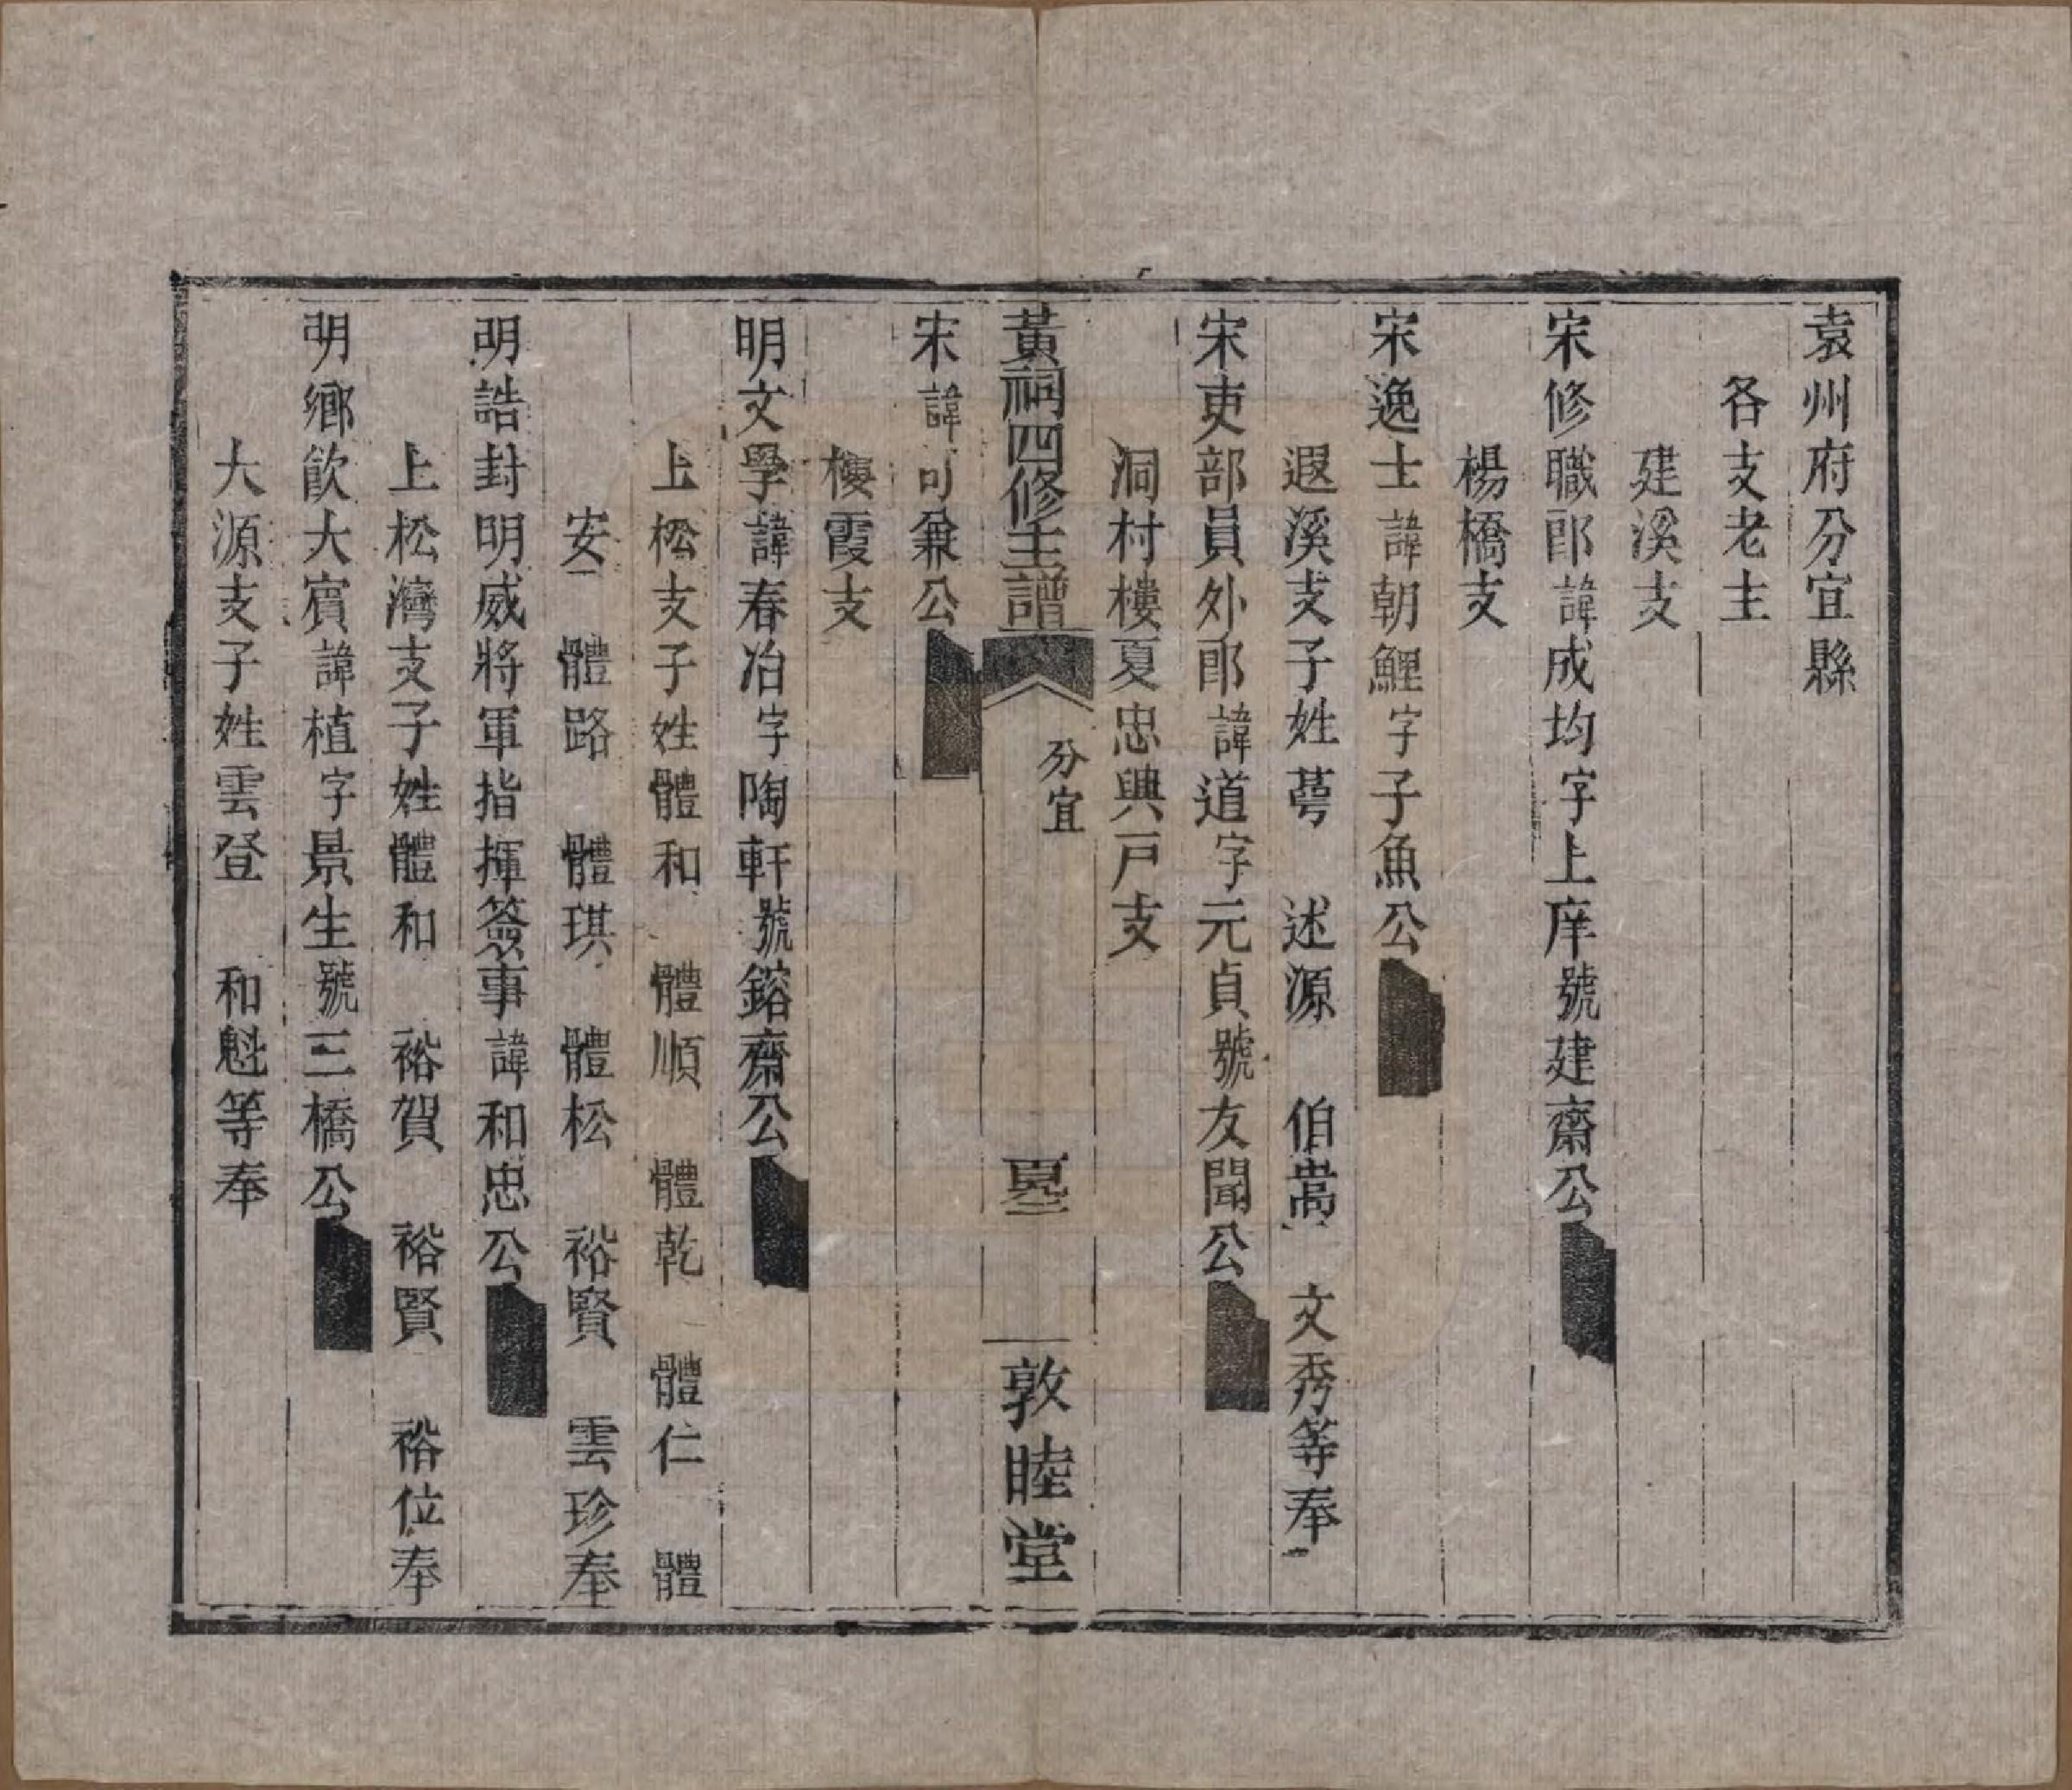 袁州府分宜縣
各支老主
建溪支
宋修職郎諱成均字上庠號建齋公
楊橋支
宋逸士諱朝鯉字子魚公
遐溪支子姓萼　述源　伯嵩　文秀等奉
宋吏部員外郎諱道字元貞號友聞公
洞村樓夏忠興戸支
黃祠四修主譜
分宜
敦睦堂
宋諱可兼公
樓霞支
明文學諱春冶字陶軒號鎔齋公
上松支子姓體和　體順　體乾　體仁　體
安　體路　體琪　體松　裕賢　雲珍奉
明誥封明威將軍指揮簽事諱和忠公
上松灣支子姓體和　裕賀　裕賢　裕位奉
明鄉飲大賓諱植字景生號三橋公
大源支子姓雲登　和魁等奉